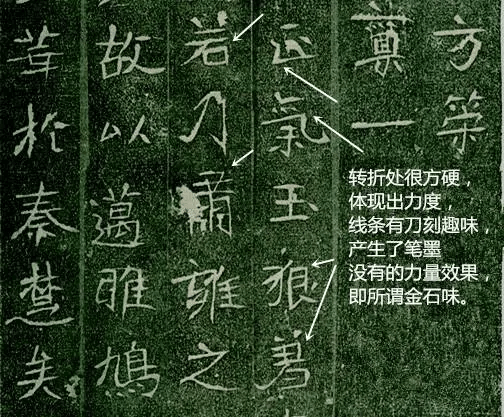 方策
一
正氣玉
若乃肅雍之
故以邁雎鳩
於秦楚矣
转折处很方硬，
体现出力度，
线条有刀刻趣味，
产生了笔墨
没有的力量效果，
即所谓金石味。